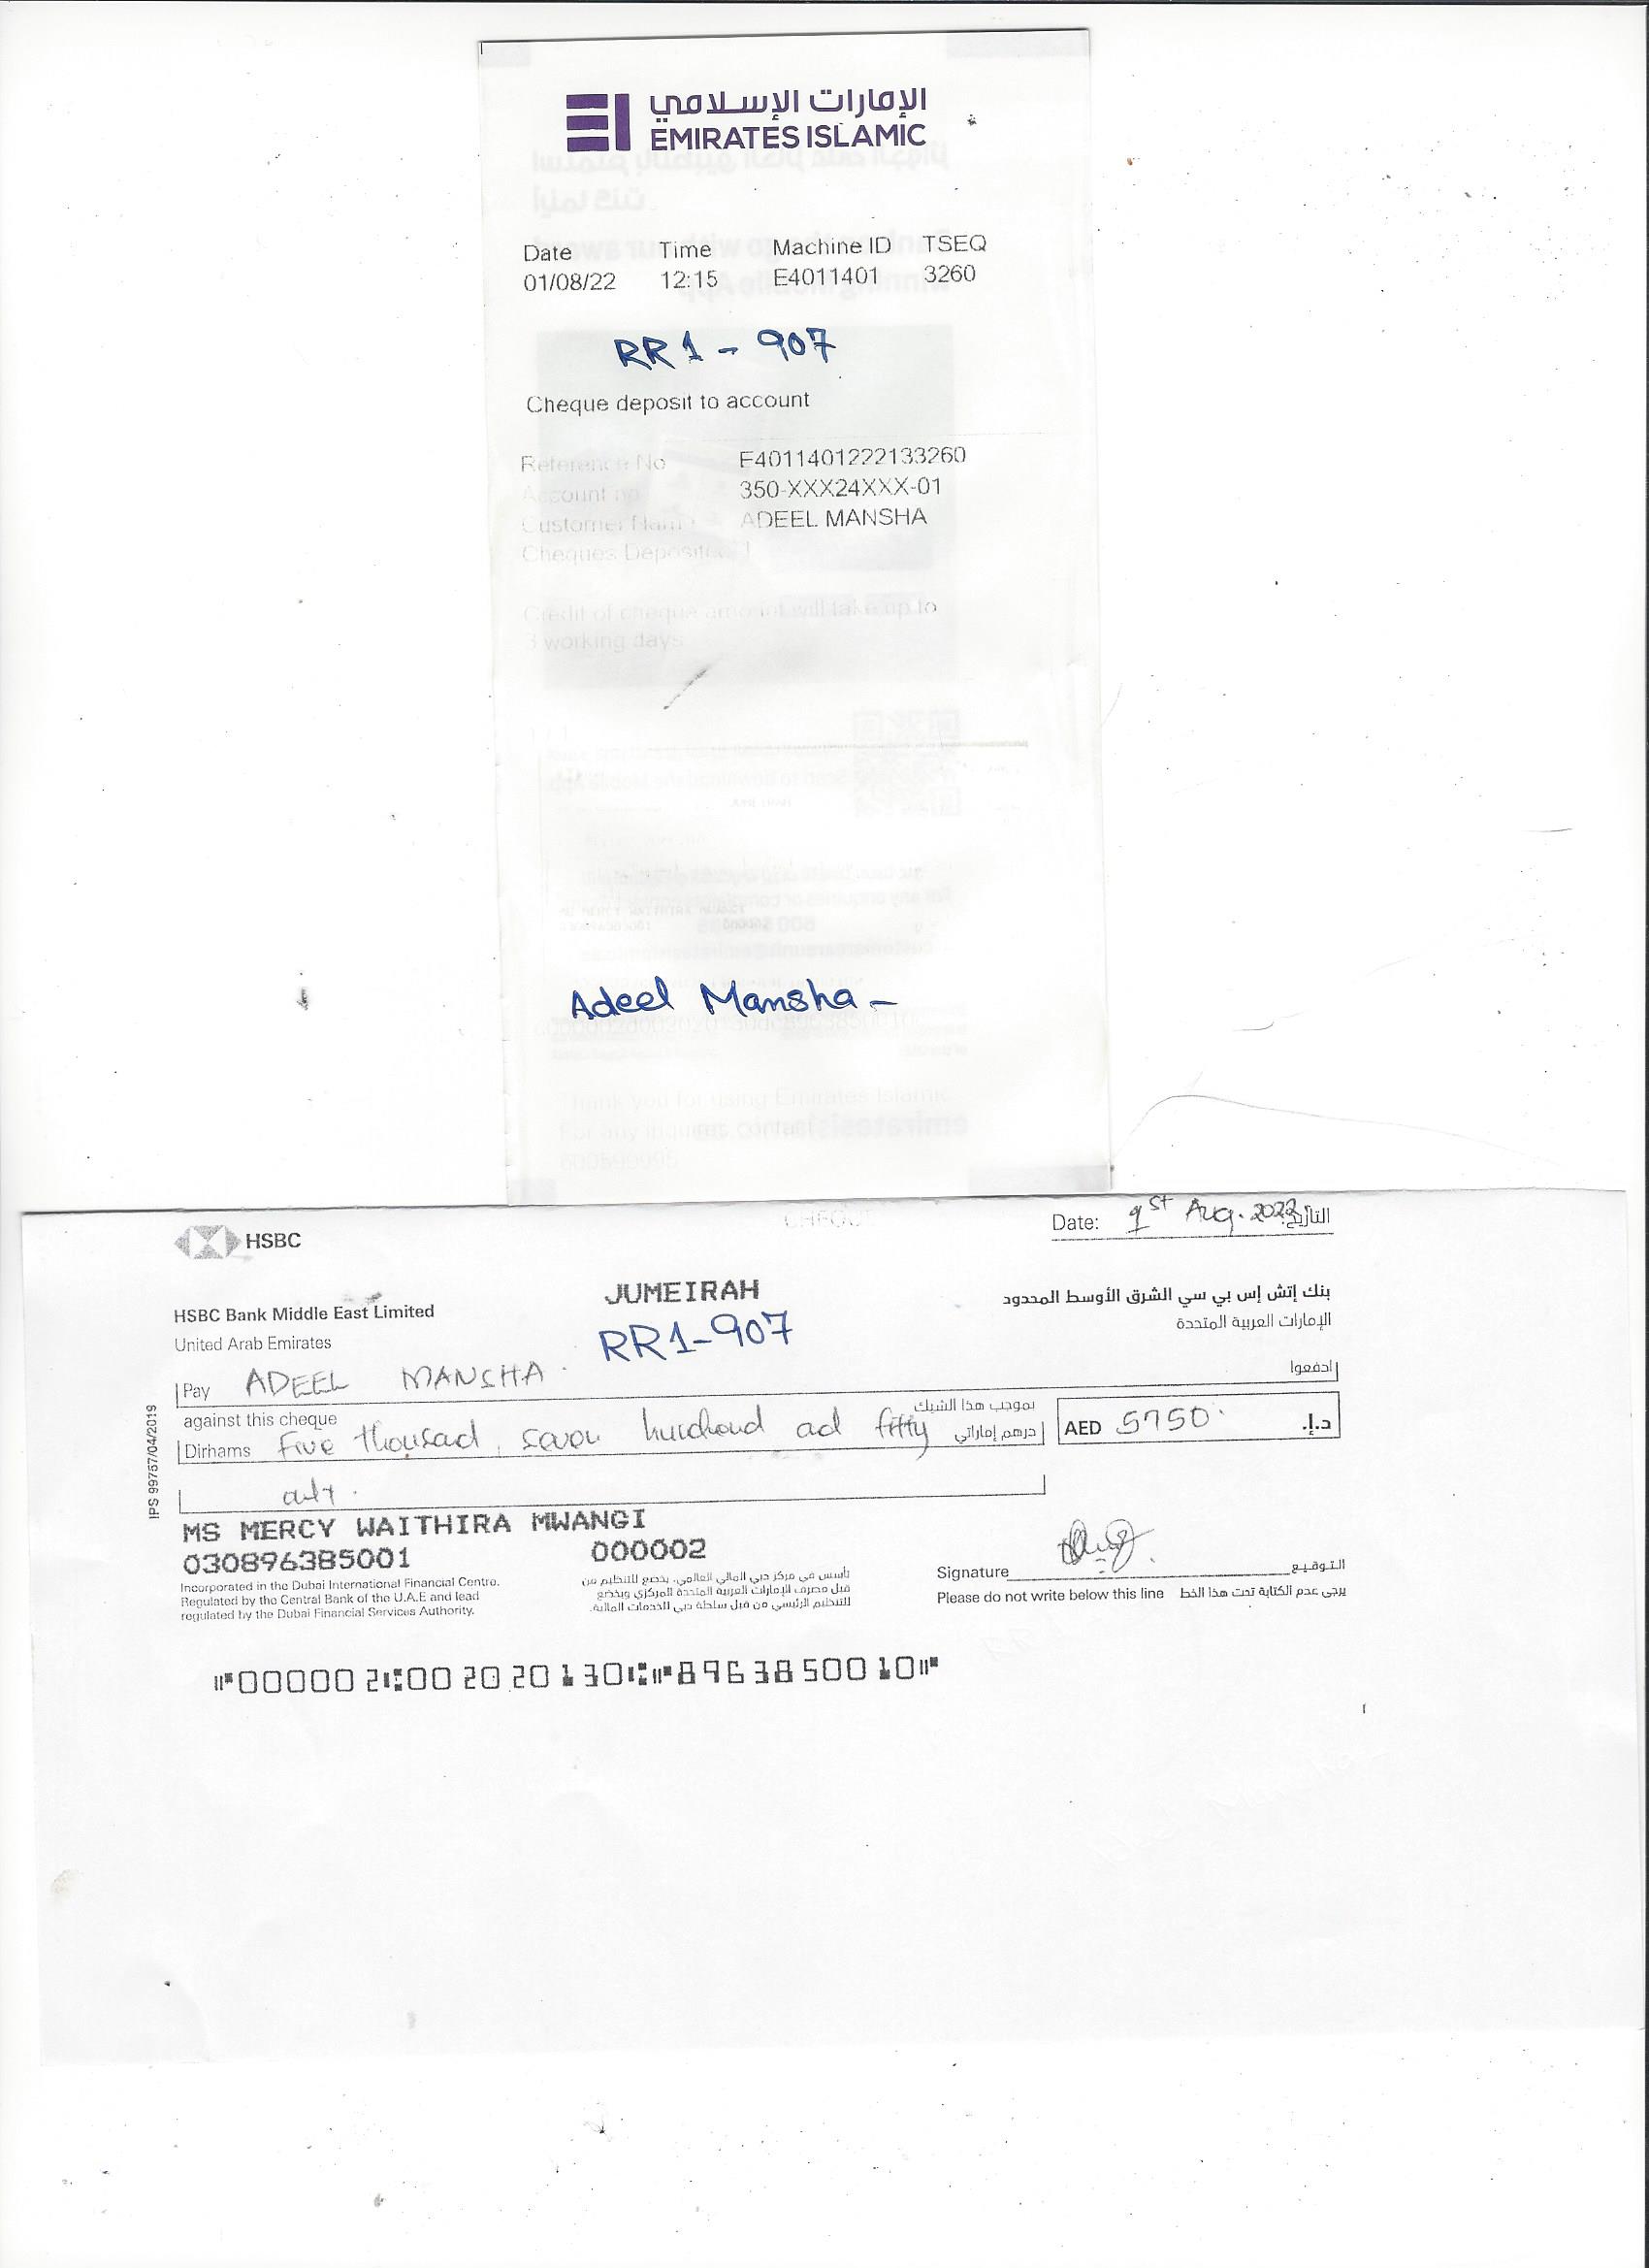 الإمارات الإسلامي
EMIRATES ISLAMIC
Date Time Machine ID TSEQ
01/08/22 12:15 E4011401 3260
RR1 - 907
Cheque deposit to account
Reference No E4011401222133260
Account no 350-XXX24XXX-01
Customer Name ADEEL MANSHA
Cheques Deposited 1
Credit of cheque amount will take up to
3 working days
Adeel Mansha -
Thank you for using Emirates Islamic
For any inquires contact
HSBC
Date: 1st Aug. 2022 التاريخ:
JUMEIRAH
HSBC Bank Middle East Limited
بنك إتش إس بي سي الشرق الأوسط المحدود
United Arab Emirates
الإمارات العربية المتحدة
RR1-907
Pay ADEEL MANSHA. ادفعوا
against this cheque بموجب هذا الشيك
Dirhams Five thousad, seven hundred ad fifty درهم إماراتي
AED 5750 د.إ.
IPS 99757/04/2019
MS MERCY WAITHIRA MWANGI
030896385001 000002
Incorporated in the Dubai International Financial Centre.
Regulated by the Central Bank of the U.A.E and lead
regulated by the Dubai Financial Services Authority.
تأسس في مركز دبي المالي العالمي. يخضع للتنظيم من
قبل مصرف الإمارات العربية المتحدة المركزي ويخضع
للتنظيم الرئيسي من قبل سلطة دبي للخدمات المالية.
Signature التوقيع
Please do not write below this line يرجى عدم الكتابة تحت هذا الخط
⑈000002⑆002020130⑆⑈8963850010⑈